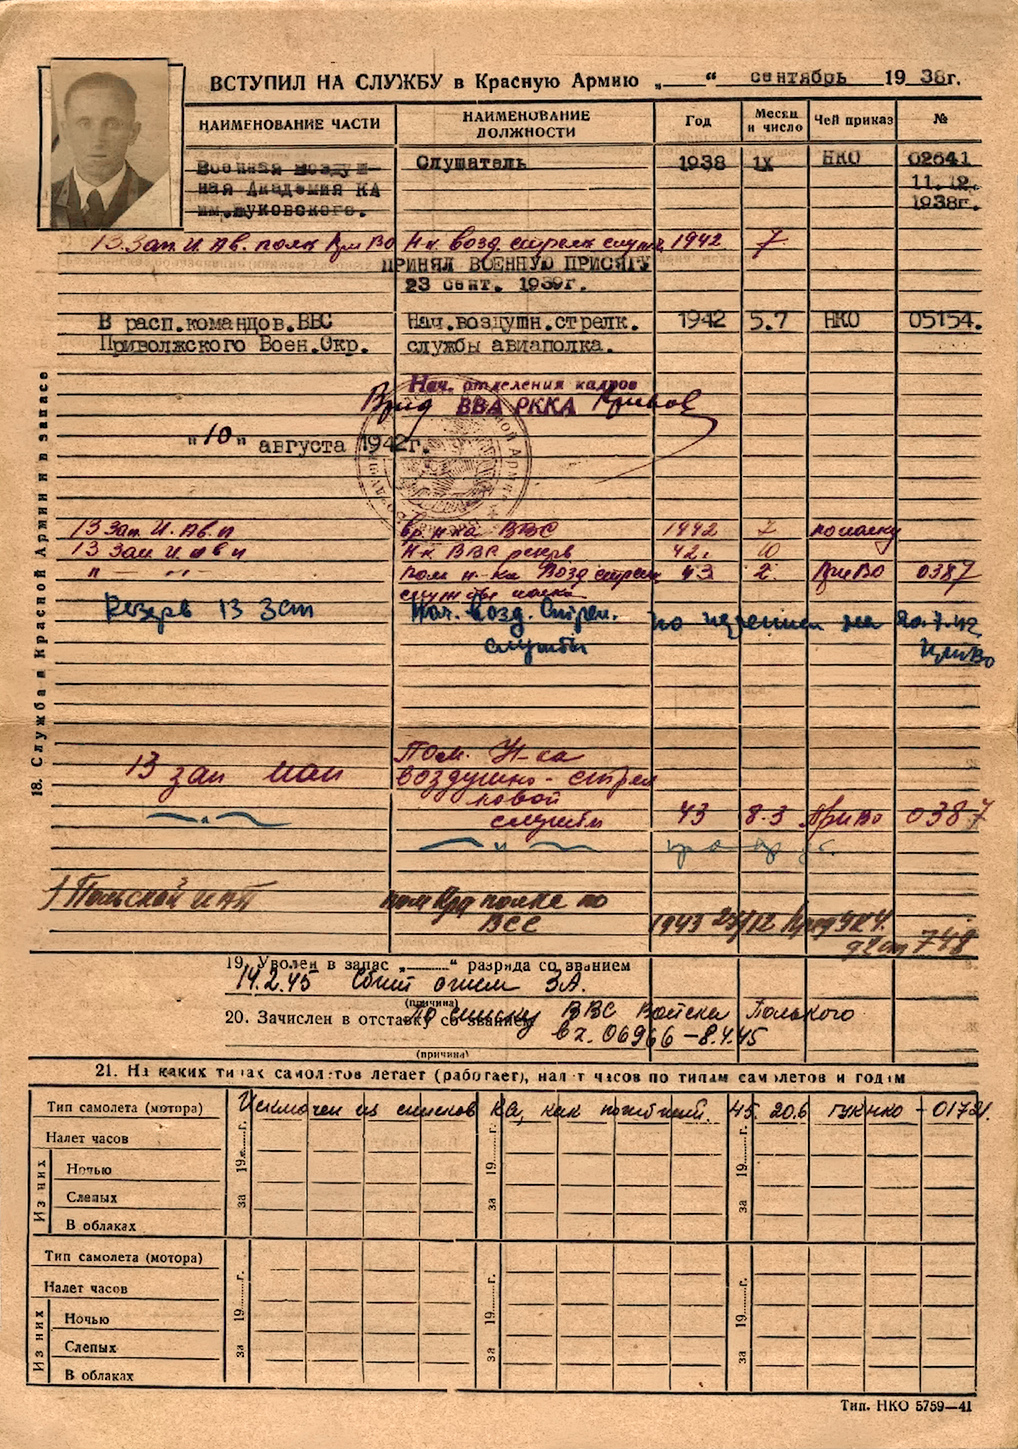 ВСТУПИЛ НА СЛУЖБУ в Красную Армию „___“ сентябрь 1938г.
НАИМЕНОВАНИЕ ЧАСТИ НАИМЕНОВАНИЕ ДОЛЖНОСТИ Год Месяц и число Чей приказ №
Военная воздуш- Слушатель 1938 IX НКО 02641
ная Академия КА 11.12.
им.Жуковского. 1938г.
13. Зап. И. Ав. полк ПриВО Н-к возд. стрелк 1942 7
ПРИНЯЛ ВОЕННУЮ ПРИСЯГУ
23 сент. 1939г.
В расп.командов.ВВС Нач.воздушн.стрелк. 1942 5.7 НКО 05154.
Приволжского Воен.Окр. службы авиаполка.
Нач. отделения кадров
Врид ВВА РККА
"10" августа 1942г.
13 Зап. И. Ав. п ВВС 1942 7
13 Зап И ав п Н-к ВВС резерв 42г.
" — " — пом н-ка Возд стрелк 43 2. ПриВО 0387
службе полка
Резерв 13 Зап Нач. Возд. Стрел. на 20.7.42.
службы ПриВо
18. Служба в Красной Армии и в запасе
13 зап иап Пом. Н-ка
воздушно-стрел
ковой
службы 43 8.3 ПриВо 0387
— " — — " —
1 Польской ИАП пом Кра полка по
ВСС 1943 23/12 748
19. Уволен в запас „___“ разряда со званием
14.2.45 Сбит огнем ЗА.
(причина)
20. Зачислен в отставку со званием
По списку ВВС Войска Польского
вх. 06966 – 8.4.45
(причина)
21. На каких типах самолетов летает (работает), налет часов по типам самолетов и годам
Тип самолета (мотора) Исключен из списков КА, как погибший. 45. 20.6 ГУК НКО – 01721.
Налет часов
Из них
Ночью
Слепых
В облаках
за 19___г. за 19___г. за 19___г.
Тип самолета (мотора)
Налет часов
Из них
Ночью
Слепых
В облаках
за 19___г. за 19___г. за 19___г.
Тип. НКО 5759—41